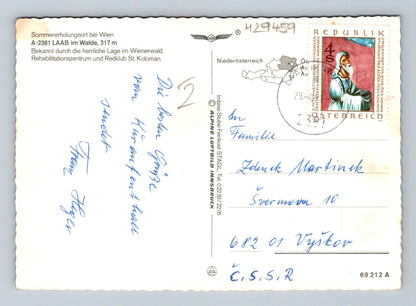 Sommererholungsort bei Wien
A-2381 LAAB im Walde, 317 m
Bekannt durch die herrliche Lage im Wienerwald.
Rehabilitationszentrum und Reitklub St. Koloman
429459
Niederösterreich
REPUBLIK
4
S
ÖSTERREICH
2381
Die besten Grüße
vom
sendet
Franz
Imbiss-Stube-Feinkost STAGL, Tel. 022 39/2205
© ALPINE LUFTBILD INNSBRUCK
An
Familie
Zdenek Martinek
Švermova 10
682 01 Vyškov
Č.S.S.R
69 212 A